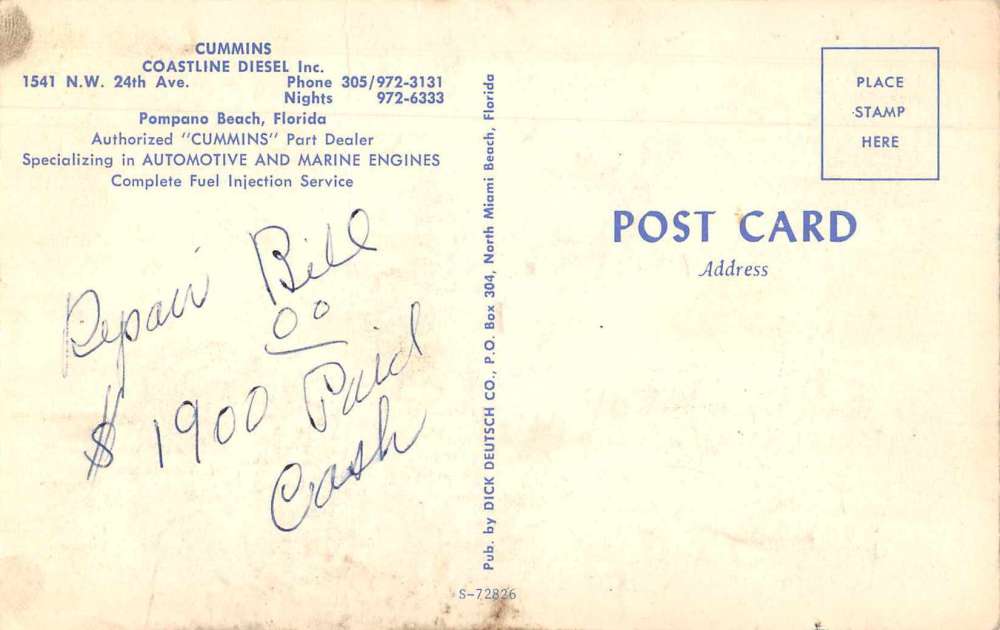 CUMMINS
COASTLINE DIESEL Inc.
1541 N.W. 24th Ave. Phone 305/972-3131
Nights 972-6333
Pompano Beach, Florida
Authorized "CUMMINS" Part Dealer
Specializing in AUTOMOTIVE AND MARINE ENGINES
Complete Fuel Injection Service
Repair Bill
$ 1900 00 Paid
Cash
Pub. by DICK DEUTSCH CO., P.O. Box 304, North Miami Beach, Florida
S-72826
PLACE
STAMP
HERE
POST CARD
Address